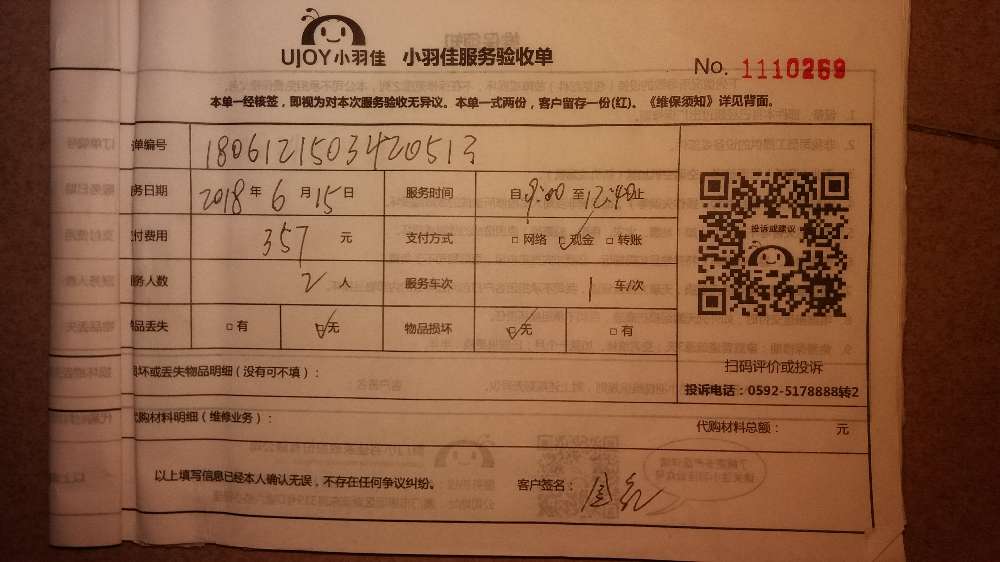 UJOY小羽佳 小羽佳服务验收单
No. 1110269
本单一经核签，即视为对本次服务验收无异议。本单一式两份，客户留存一份(红)。《维保须知》详见背面。
单编号 1806121503420513
务日期 2018年6月15日 服务时间 自9:00至12:40止
付费用 357元 支付方式 □网络 ☑现金 □转账
务人数 2人 服务车次 1车/次
物品丢失 □有 ☑无 物品损坏 ☑无 □有
投诉或建议
扫码评价或投诉
投诉电话：0592-5178888转2
损坏或丢失物品明细（没有可不填）：
代购材料明细（维修业务）：
代购材料总额： 元
以上填写信息已经本人确认无误，不存在任何争议纠纷。 客户签名：